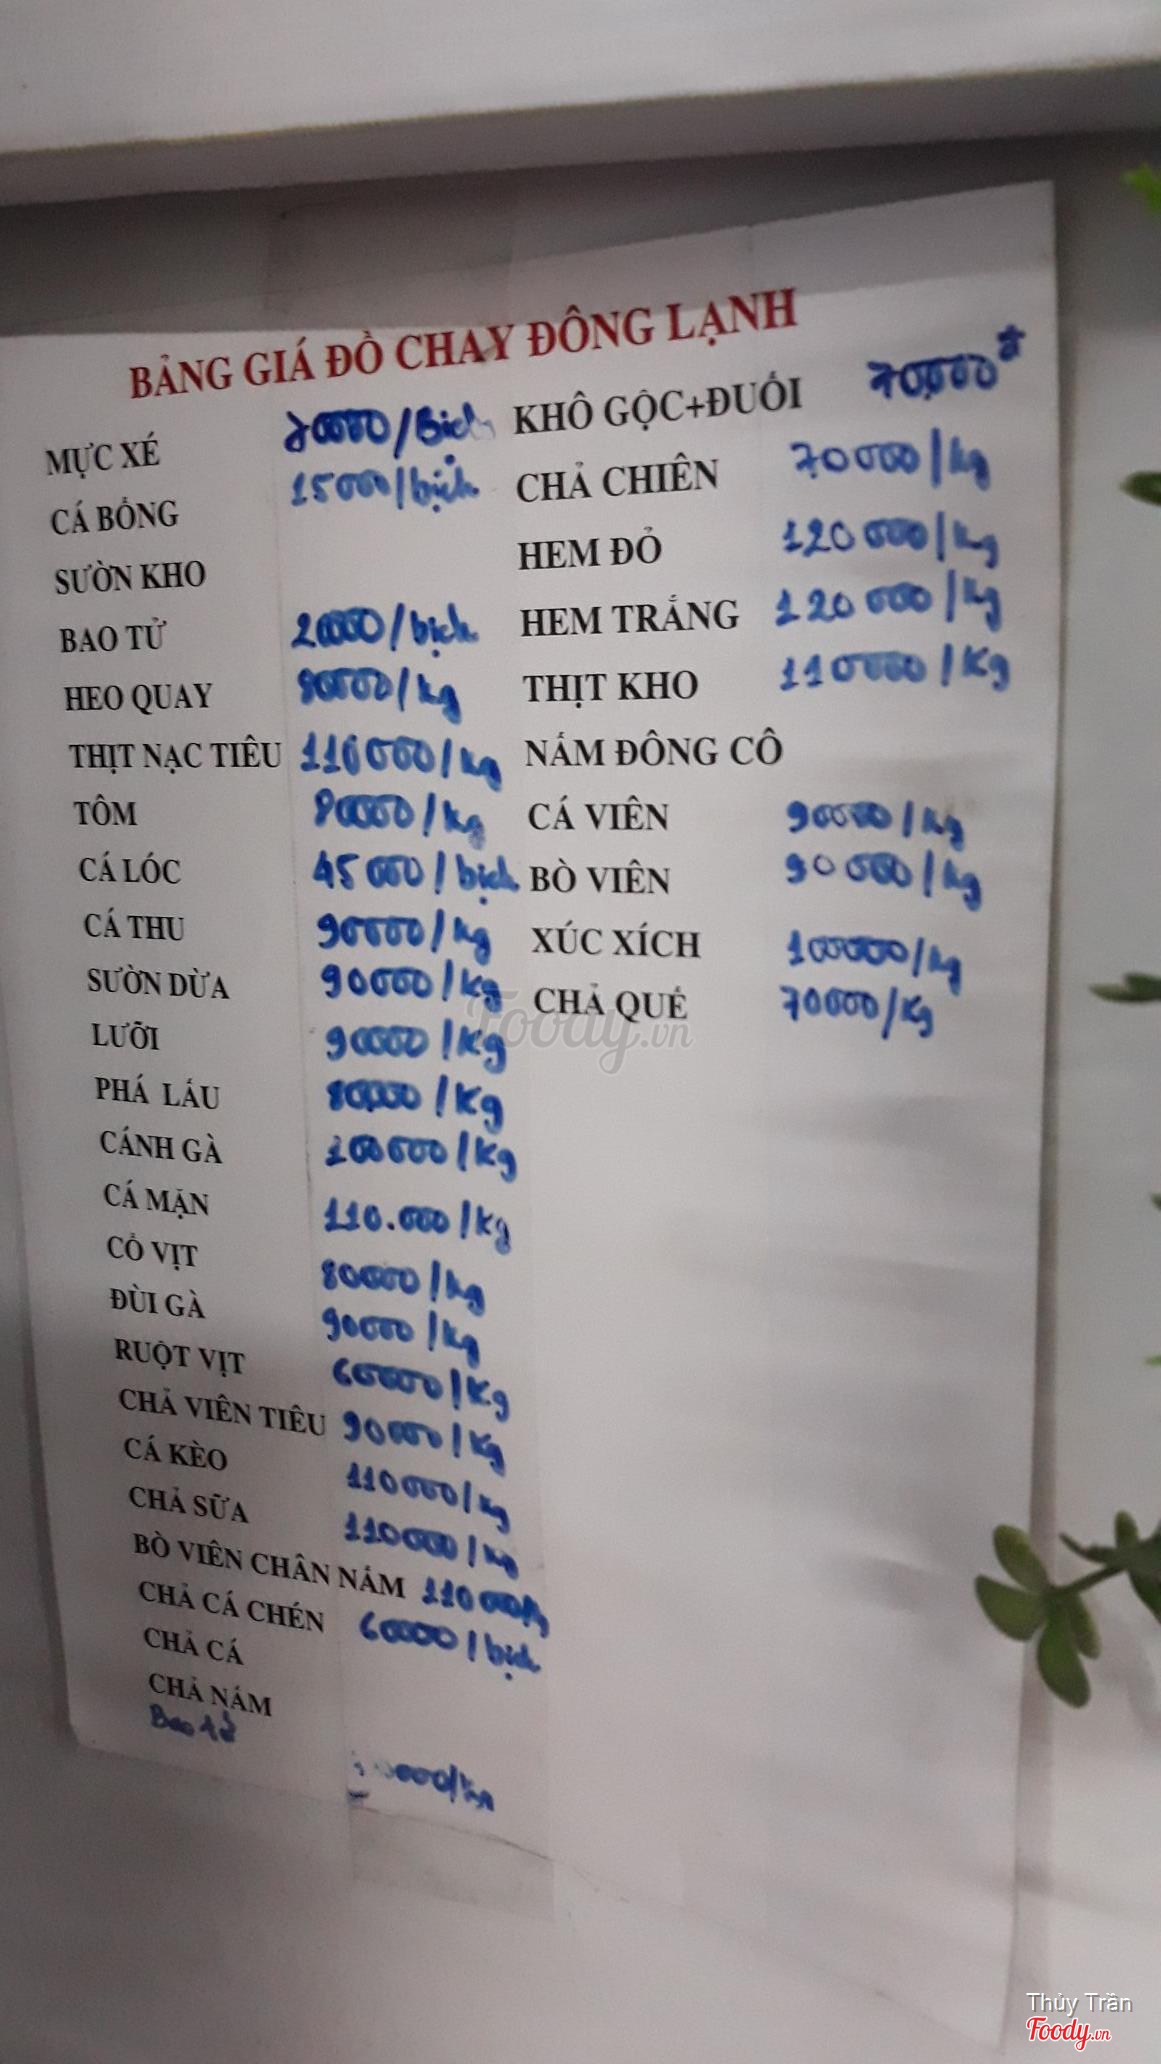 BẢNG GIÁ ĐỒ CHAY ĐÔNG LẠNH
MỰC XÉ 20000/Bịch
CÁ BỐNG 15000/bịch
SƯỜN KHO
BAO TỬ 20000/bịch
HEO QUAY 80000/kg
THỊT NẠC TIÊU 110000/kg
TÔM 80000/kg
CÁ LÓC 45000/bịch
CÁ THU 90000/kg
SƯỜN DỪA 90000/kg
LƯỠI 90000/kg
PHÁ LẤU 80,000/kg
CÁNH GÀ 100000/kg
CÁ MẶN 110.000/kg
CỔ VỊT 80000/kg
ĐÙI GÀ 90000/kg
RUỘT VỊT 60000/kg
CHẢ VIÊN TIÊU 90000/kg
CÁ KÈO 110000/kg
CHẢ SỮA 110000/kg
BÒ VIÊN CHÂN NẤM 110000/
CHẢ CÁ CHÉN 60000/bịch
CHẢ CÁ
CHẢ NẤM
Bao tử
KHÔ GỘC+ĐUỐI 70,000đ
CHẢ CHIÊN 70000/kg
HEM ĐỎ 120000/kg
HEM TRẮNG 120000/kg
THỊT KHO 110000/Kg
NẤM ĐÔNG CÔ
CÁ VIÊN 90000/kg
BÒ VIÊN 90000/kg
XÚC XÍCH 100000/kg
CHẢ QUẾ 70000/Kg
Foody.vn
Thủy Trần
Foody.vn